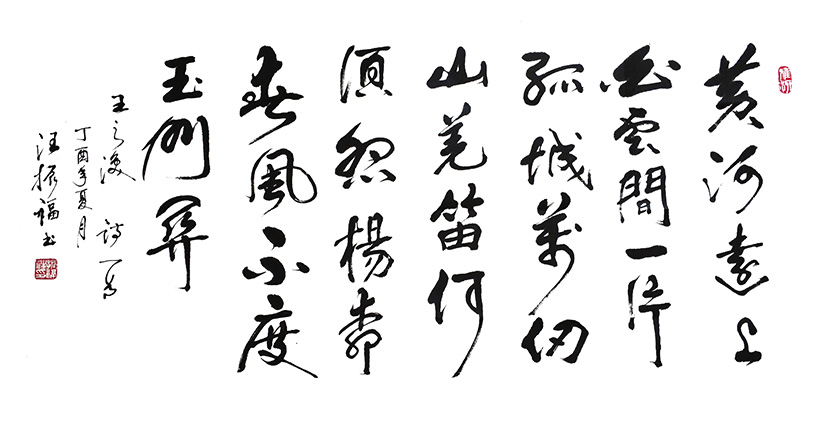 黄河遠上
白雲間一片
孤城萬仞
山羌笛何
須怨楊柳
春風不度
玉門關
王之渙詩一首
丁酉年夏月
汪振福书